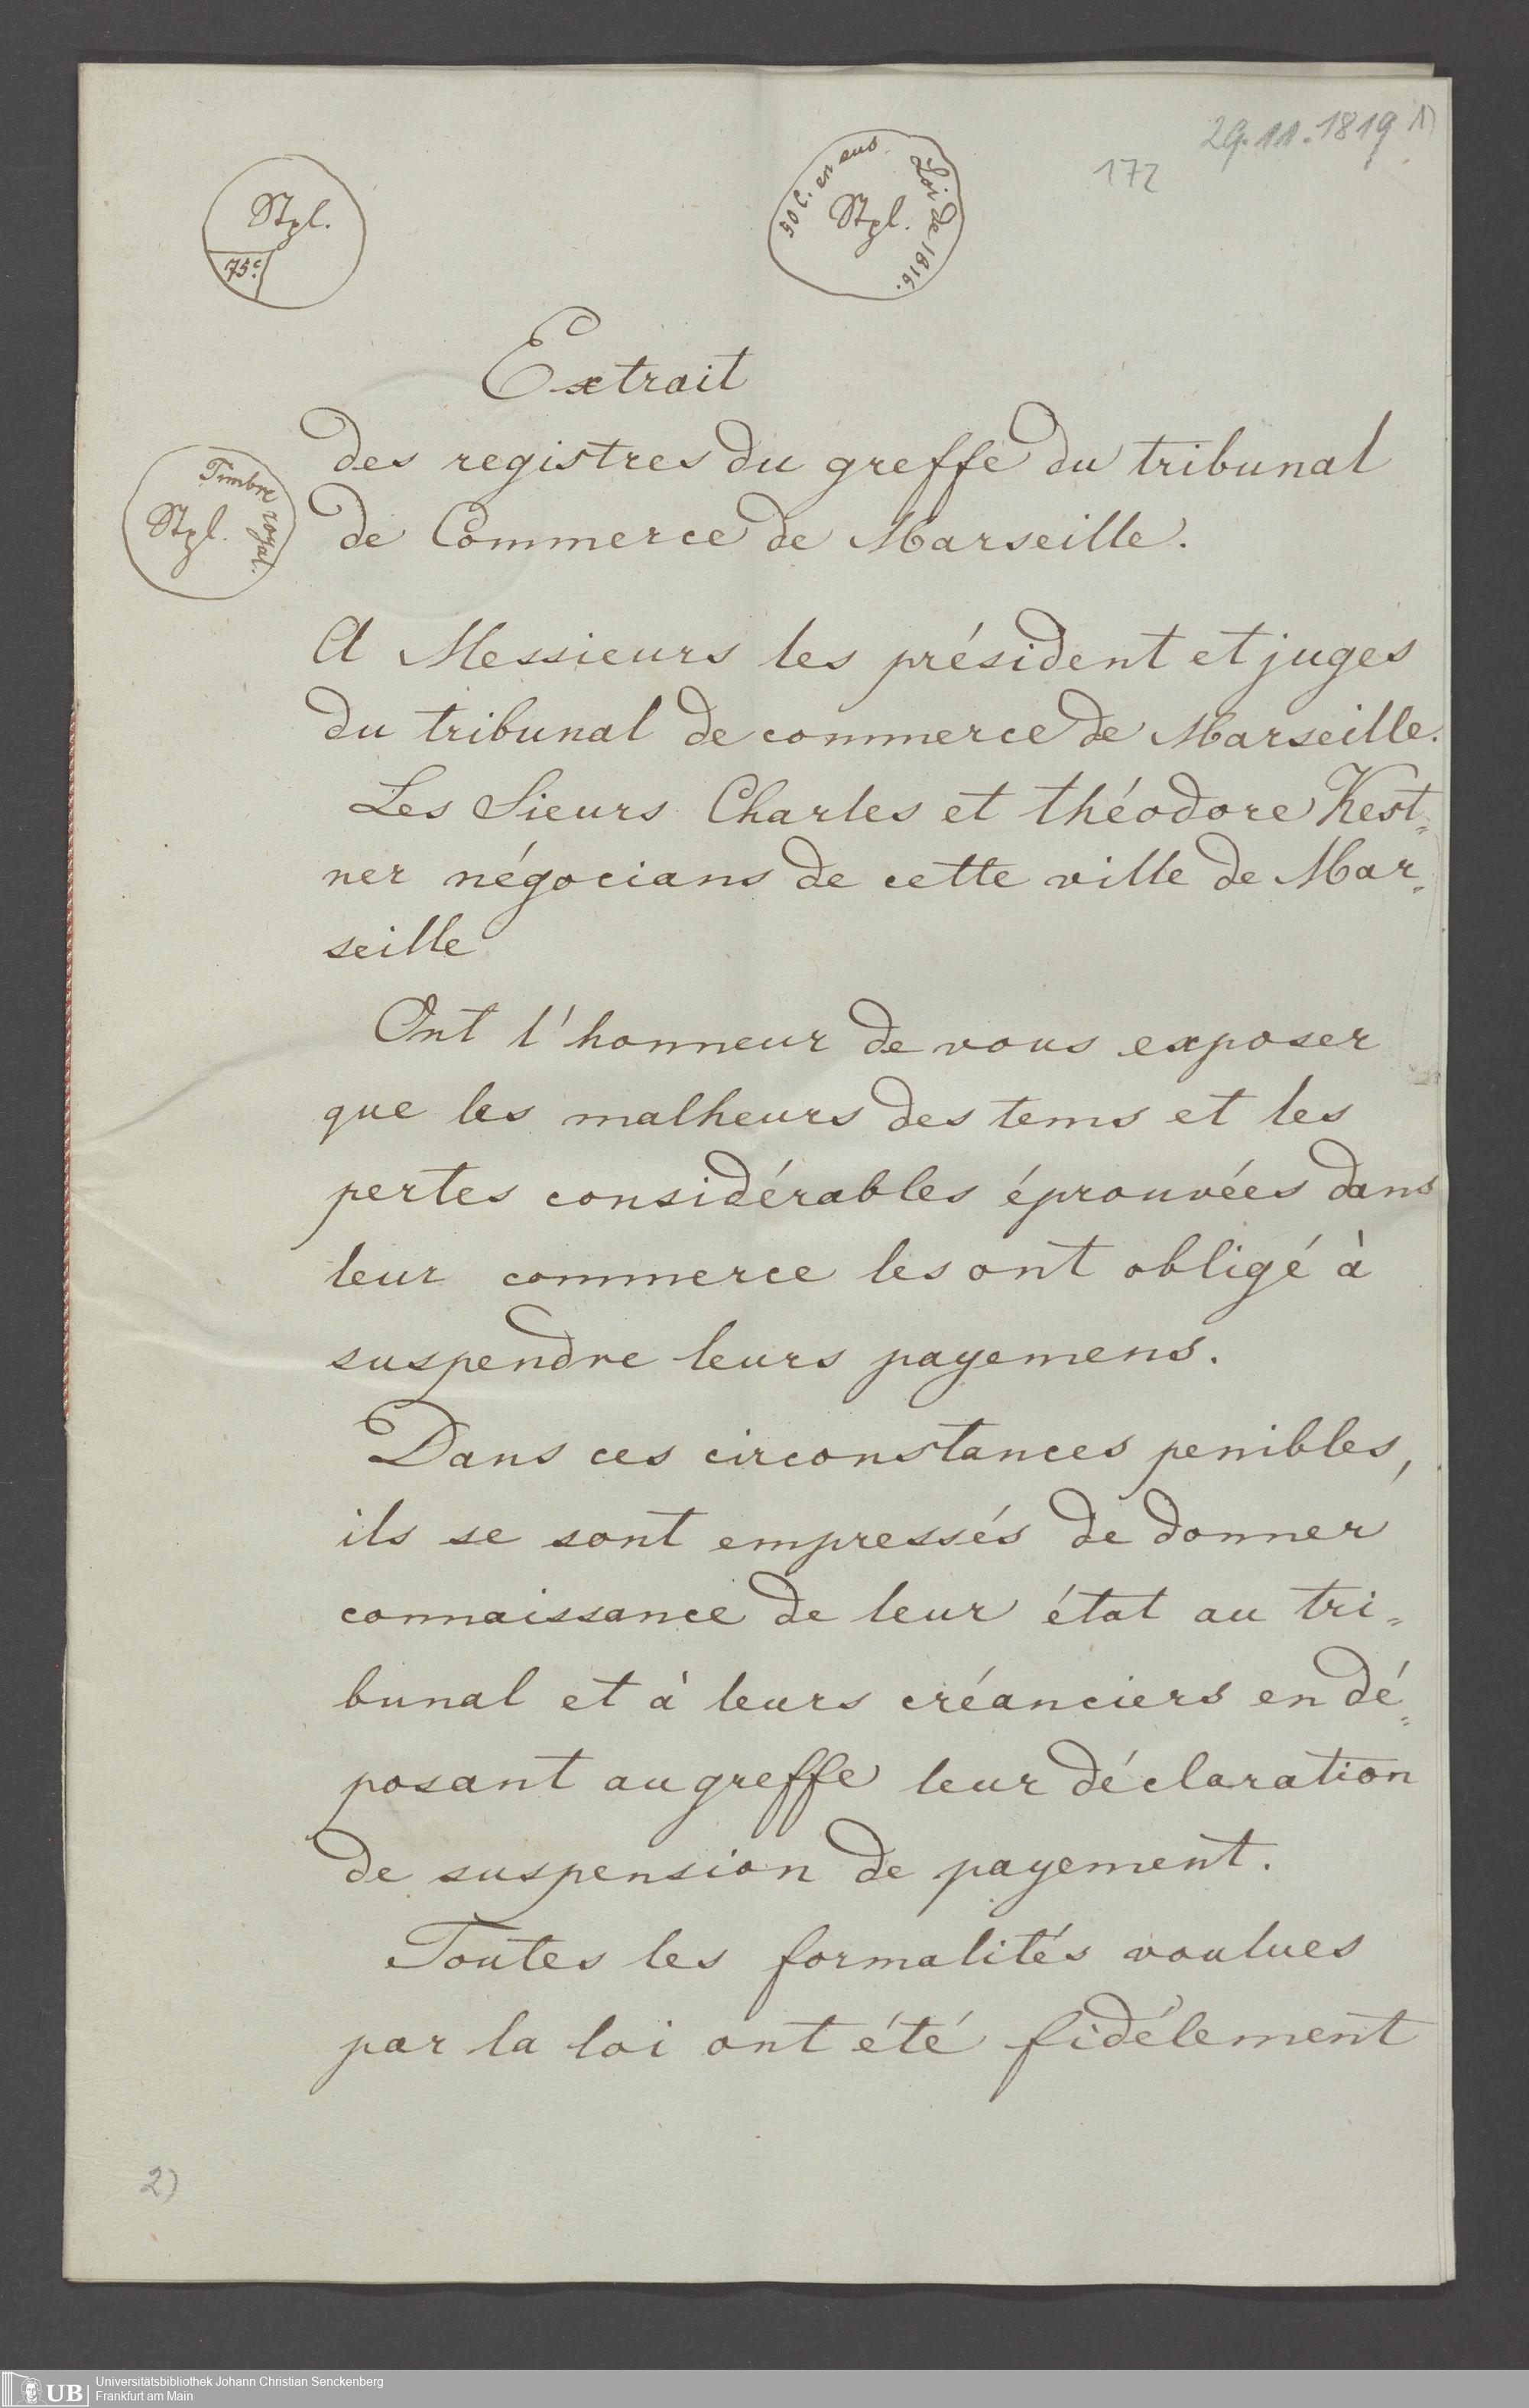 29.11.1819 1)
172
Stpl.
75c.
50 C. en sus
Loi de 1816.
Stpl.
Extrait
des registres du greffe du tribunal
de Commerce de Marseille.
Timbre royal.
Stpl.
A Messieurs les président et juges
du tribunal de commerce de Marseille.
Les Sieurs Charles et théodore Kest=
ner négocians de cette ville de Mar=
seille
Ont l'honneur de vous exposer
que les malheurs des tems et les
pertes considérables éprouvées dans
leur commerce les ont obligé à
suspendre leurs payemens.
Dans ces circonstances penibles,
ils se sont empressés de donner
connaissance de leur état au tri=
bunal et à leurs créanciers en dé=
posant au greffe leur déclaration
de suspension de payement.
Toutes les formalités voulues
par la loi ont été fidélement
2)
UB
Universitätsbibliothek Johann Christian Senckenberg
Frankfurt am Main